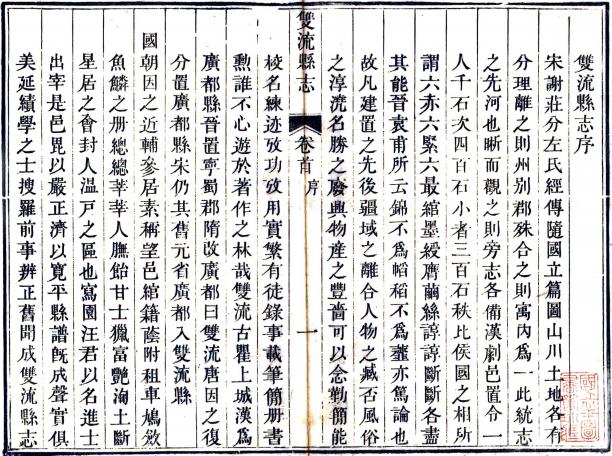 雙流縣志序
宋謝莊分左氏經傳隨國立篇圖山川土地各有
分理離之則州別郡殊合之則寓內爲一此統志
之先河也晰而觀之則旁志各備漢劇邑置令一
人千石次四百石小者三百石秩比侯國之相所
謂六赤六緊六最綰墨綬膺繭絲諄諄斷斷各盡
其能晉袁甫所云錦不爲幍稻不爲虀亦篤論也
故凡建置之先後疆域之離合人物之臧否風俗
之淳漓名勝之廢興物產之豐嗇可以念勒簡能
雙流縣志 卷首 序 一
棱名練迹攷功攷用實繁有徒錄事載筆簡册書
勲誰不心遊於著作之林哉雙流古瞿上城漢爲
廣都縣晉置寧蜀郡隋改廣都曰雙流唐因之復
分置廣都縣宋仍其舊元省廣都入雙流縣
國朝因之近輔參居素稱望邑綰籍蔭附租車鳩斂
魚鱗之册總總莘莘人膴飴甘士獵富艷洵土斷
星居之會封人溫戸之區也寫園汪君以名進士
出宰是邑毘以嚴正濟以寬平縣譜旣成聲實俱
美延績學之士搜羅前事辨正舊聞成雙流縣志